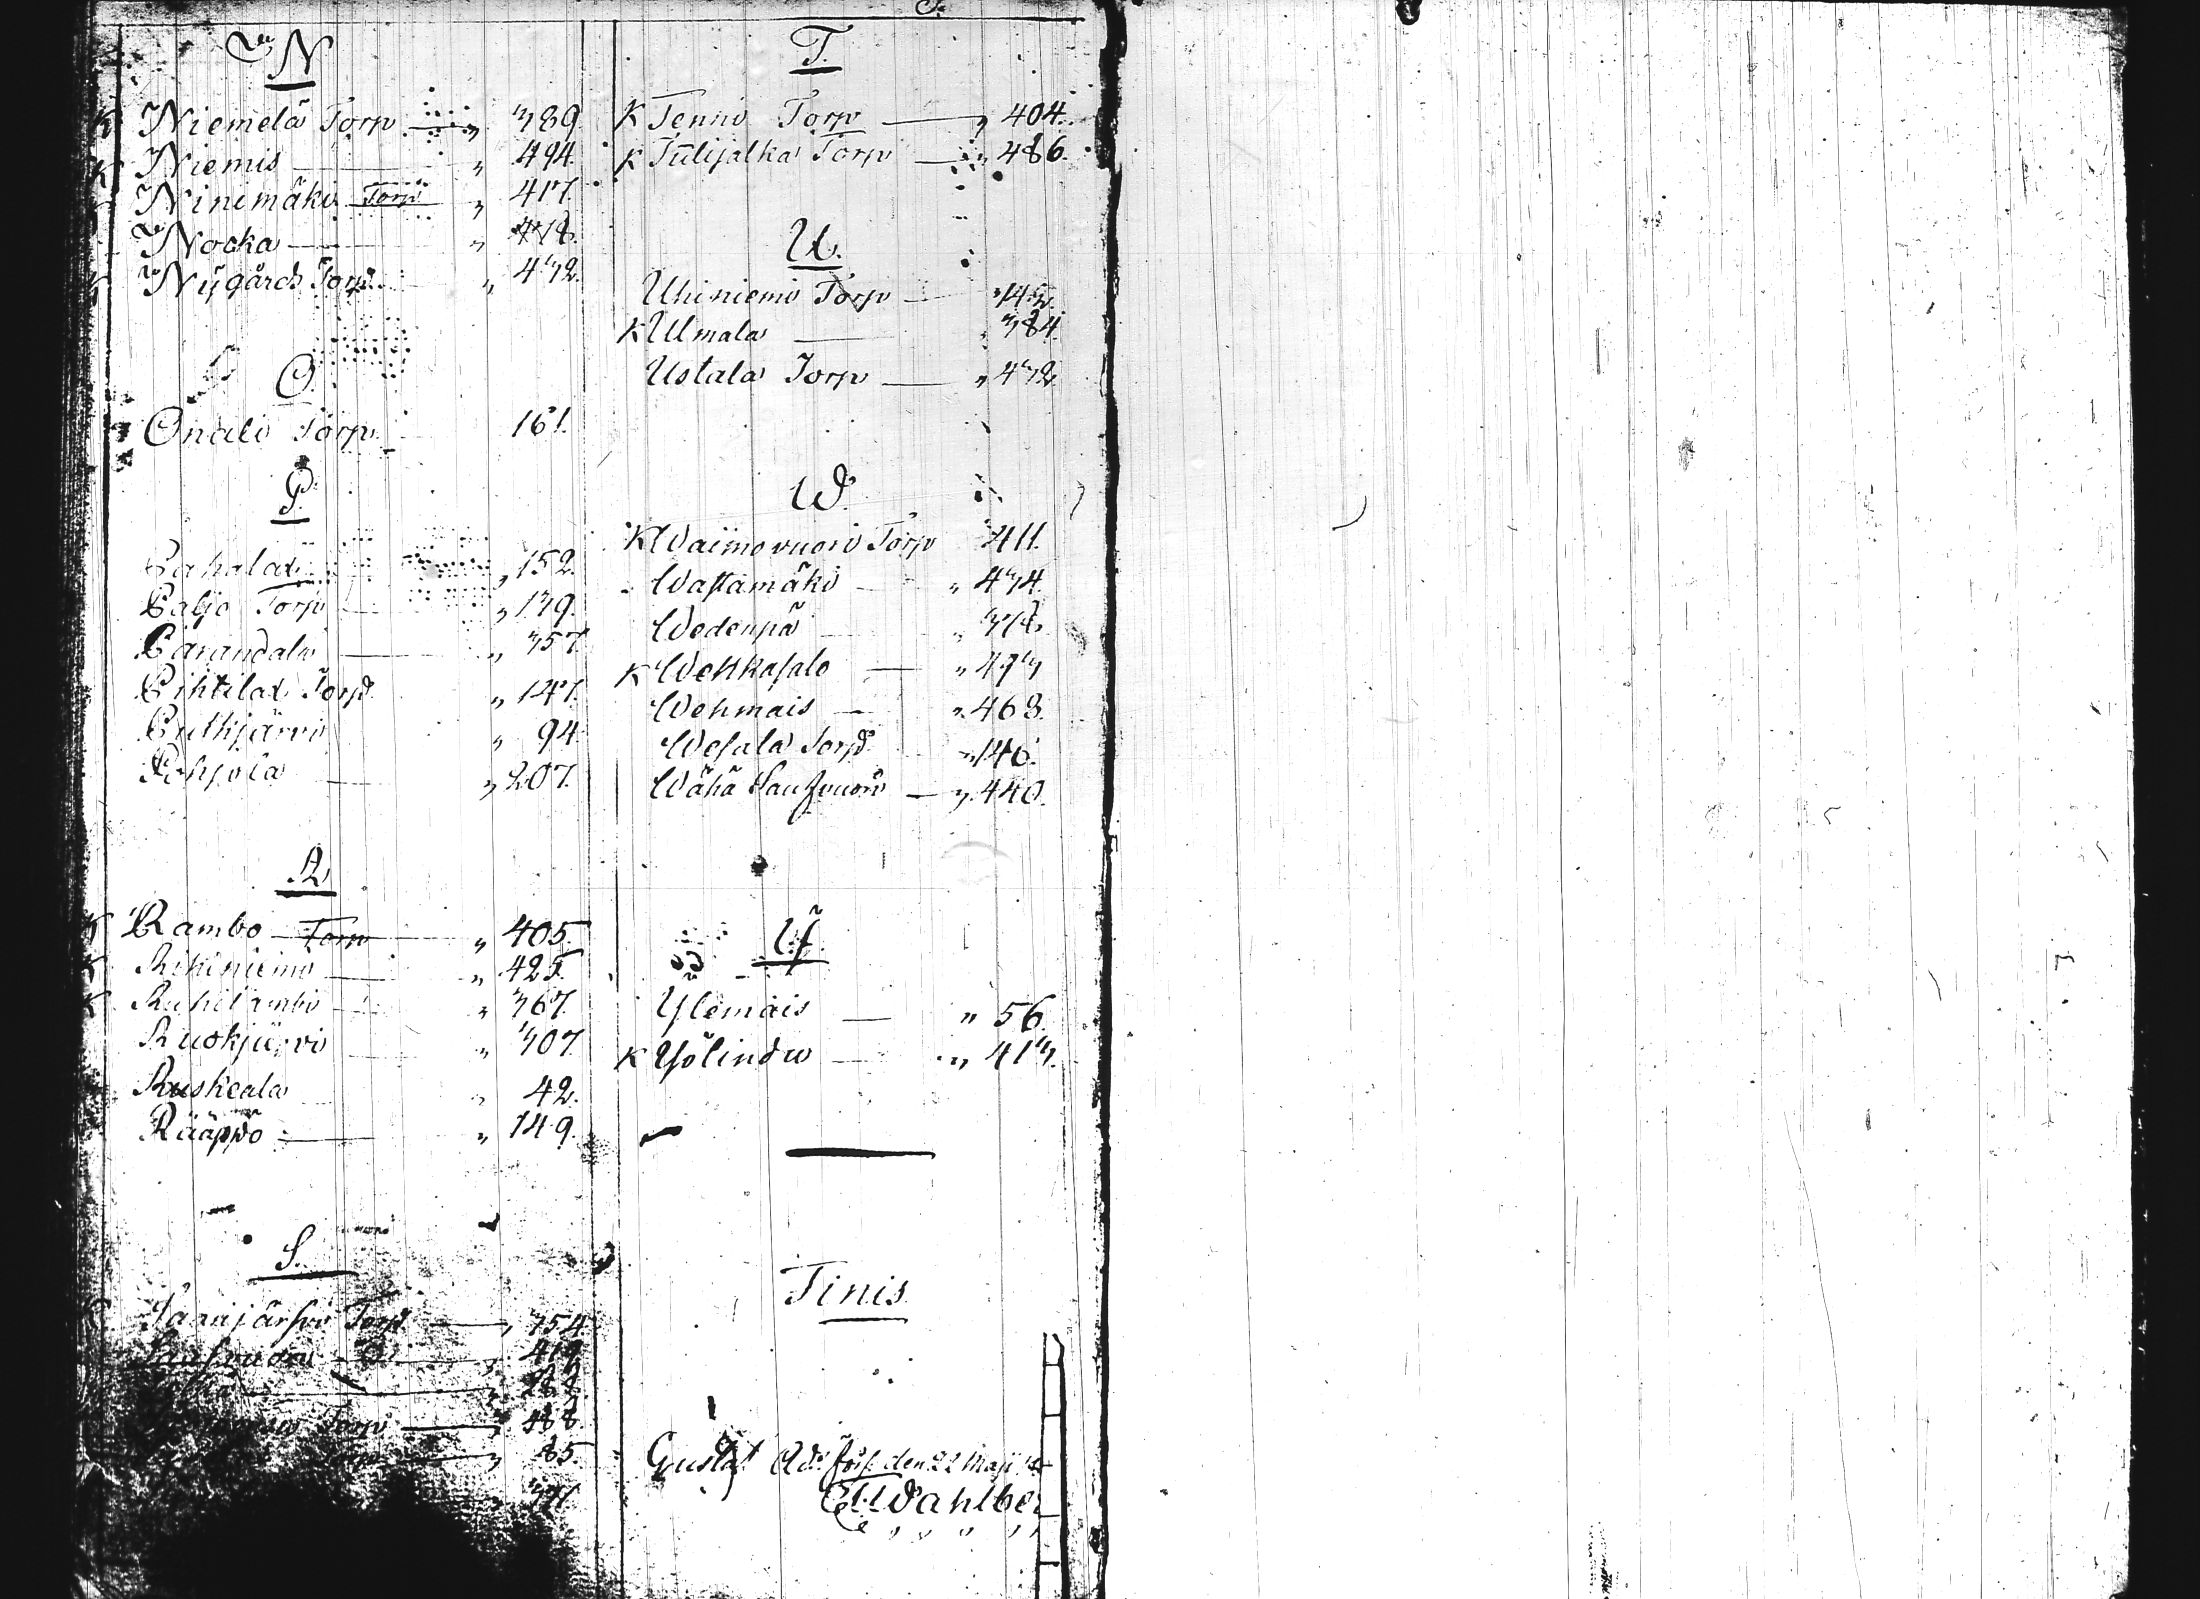 N
K Niemelä Torp — " 389.
K Niemis — " 494.
Ninimäki Torp " 417.
Nocka — " 378.
K Nÿgårds Torp " 432.
O.
Onali Torp 161.
P.
Pahalax — " 152.
Paljo Torp — " 139.
Parandala — " 357.
Pihtilax Torp " 147.
Pitkjärvi " 94.
Pohjola — " 207.
R
K Rambo Torp " 405.
K Rikiniemi — " 425.
K Ruhilambi — " 367.
Ruokjärvi — " 307.
Ruskeala " 42.
Rääppö — " 149.
S.
Saarijärfvi Torp — " 354.
419.
Torp — 488.
85.
T.
K Tenno Torp — " 404.
K Tulijalka Torp — " 486.
U.
Uhiniemi Torp —
K Ulmala — " 384.
Ustala Torp — " 432.
W.
K Waimovuori Torp 411.
Wastamäki — " 434.
Wedenpä — " 318.
K Wehkasalo — " 493.
Wehmais — " 468.
Wesala Torp — " 146.
Wähä Saufvuori — " 440.
Ÿ.
Ylemäis — " 56.
K Yölindu — " 413.
Finis
Gustaf Ad: förs. den 22 Maji
Wahlber